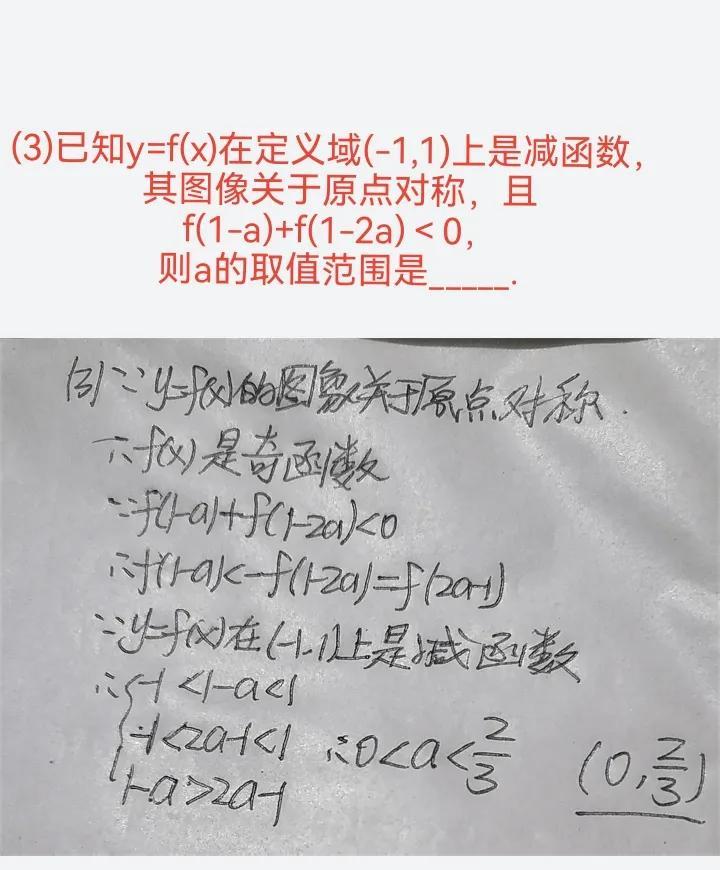 (3)已知y=f(x)在定义域(-1,1)上是减函数，
其图像关于原点对称，且
f(1-a)+f(1-2a)<0，
则a的取值范围是_____.
(3)∵y=f(x)的图象关于原点对称.
∴f(x)是奇函数
∵f(1-a)+f(1-2a)<0
∴f(1-a)<-f(1-2a)=f(2a-1)
∵y=f(x)在(-1,1)上是减函数
∴{-1<1-a<1
-1<2a-1<1 ∴0<a<2/3 (0,2/3)
1-a>2a-1